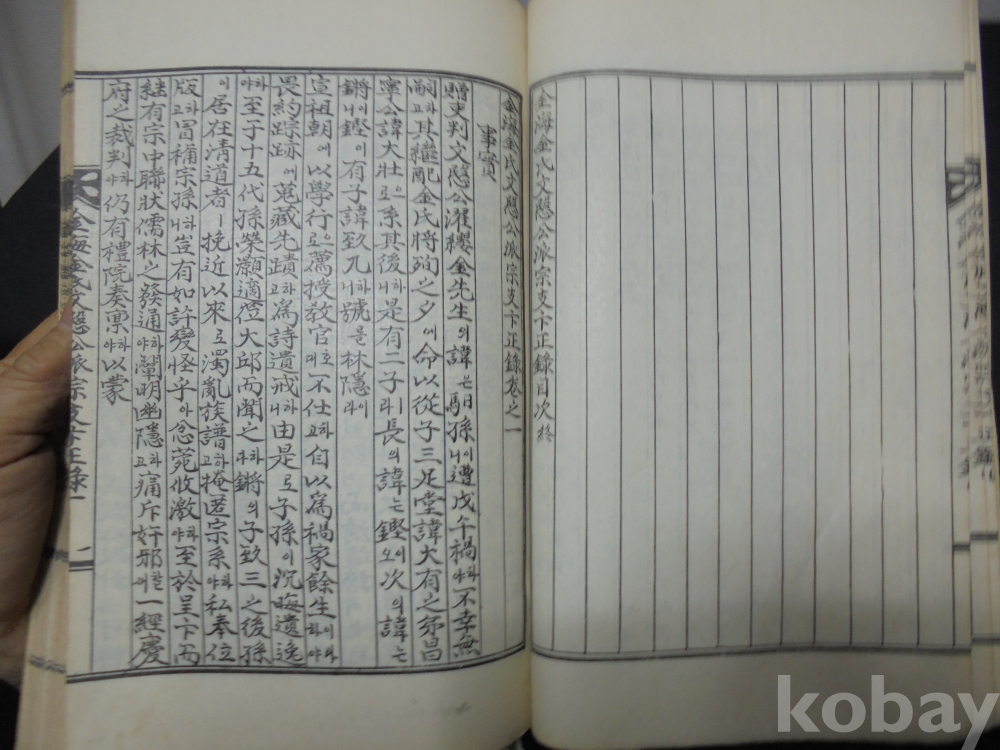 金海金氏文愍公派宗支卞正錄目次終
金海金氏文愍公派宗支卞正錄卷之一
事實
贈吏判文愍公濯纓金先生의諱는馹孫이니遭戊午禍하야不幸無
嗣하고其繼配金氏將殉之夕에命以從子三足堂諱大有之弟昌
寧公諱大壯으로系其後하니是有二子라長의諱는鏗이오次의諱는
鏘이니鏗이有子諱致九니號를林隱이라
宣祖朝에以學行으로薦授教官호대不仕하고自以爲禍家餘生이라하야
畏約踪跡에蒐藏先蹟하고爲詩遺戒하니由是로子孫이沉晦遺逸
하야至于十五代孫榮灝適登大邱而聞之하니鏘의子致三之後孫
이居在清道者ㅣ挽近以來로濁亂族譜하고掩匿宗系하야私奉位
版하고冒補宗孫하니豈有如許變怪乎아念菀收激하야至於呈卞而
継有宗中聯狀儒林之發通하야闡明幽隱하고痛斥奸邪할새一經慶
府之裁判하야仍有禮院奏禀하야以蒙
金海金氏文愍公派宗支卞正錄 一
kobay